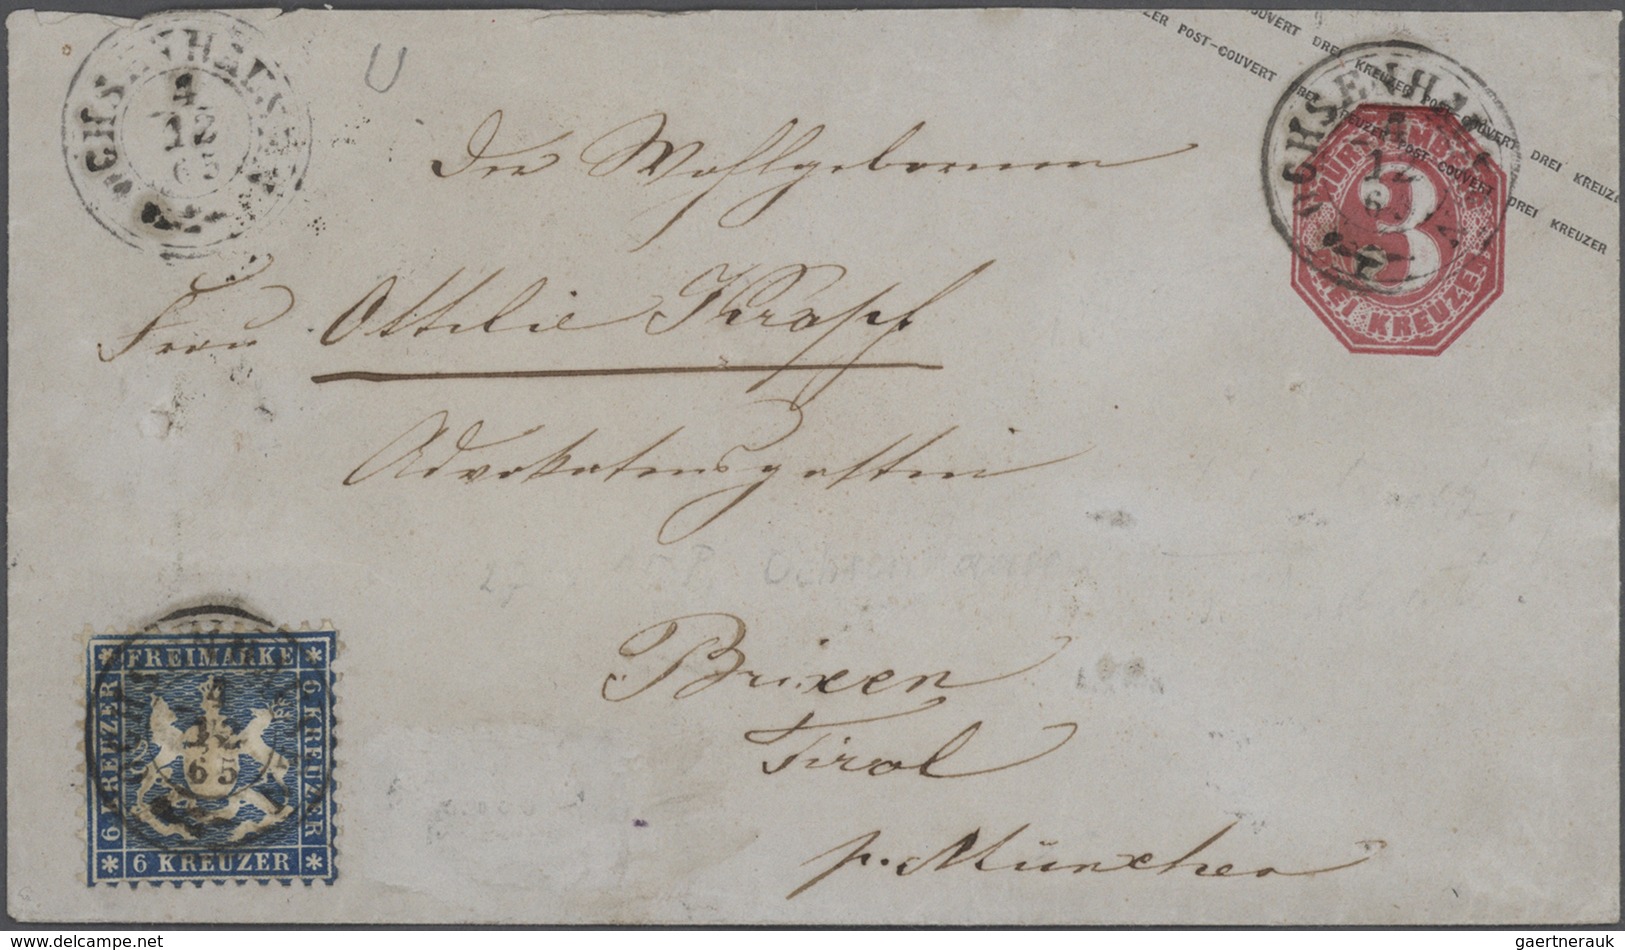 OCHSENHAUSEN
4
12
65
U
ZER POST-COUVERT DREI KREUZER POST-COUVERT DREI KREUZER
POST-COUVERT DREI KREUZER POST-COUVERT DREI KREUZER
OCHSENHAUSEN
4
12
65
WÜRTTEMBERG
3
DREI KREUZER
Der Wohlgebornen
Frau Ottilie Krapf
Advokatensgattin
Ochsenhausen
Brixen
Tirol
p. München
FREIMARKE
6 KREUZER
6 KREUZER
6 KREUZER
4
12
65
gaertnerauk